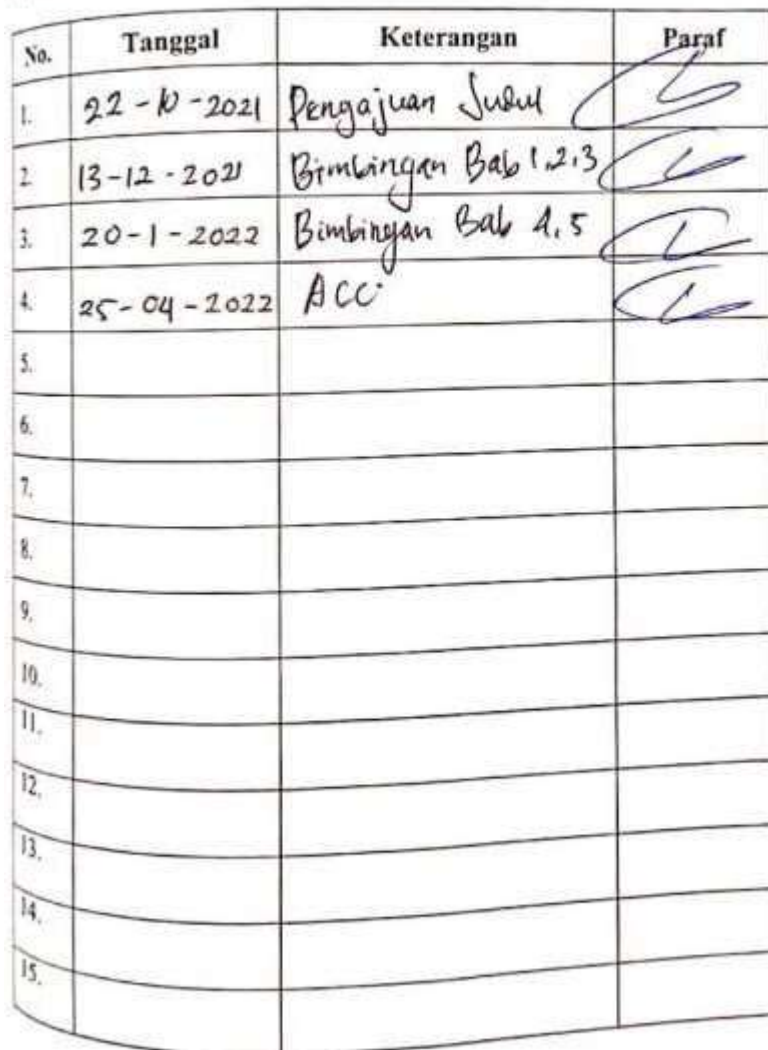 No. Tanggal Keterangan Paraf
1. 22-10-2021 Pengajuan Judul
2. 13-12-2021 Bimbingan Bab 1,2,3
3. 20-1-2022 Bimbingan Bab 4,5
4. 25-04-2022 ACC
5.
6.
7.
8.
9.
10.
11.
12.
13.
14.
15.